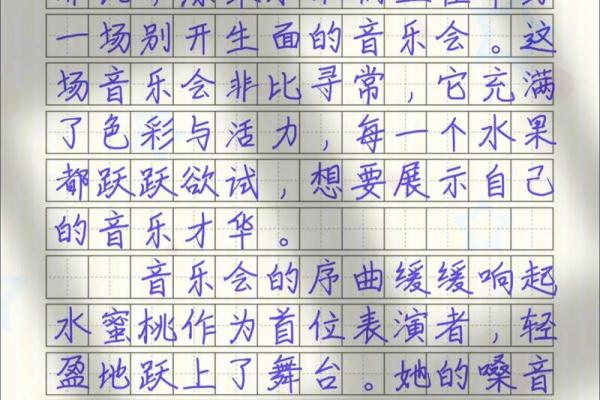 一场别开生面的音乐会。这
场音乐会非比寻常，它充满
了色彩与活力，每一个水果
都跃跃欲试，想要展示自己
的音乐才华。
音乐会的序曲缓缓响起
水蜜桃作为首位表演者，轻
盈地跃上了舞台。她的嗓音